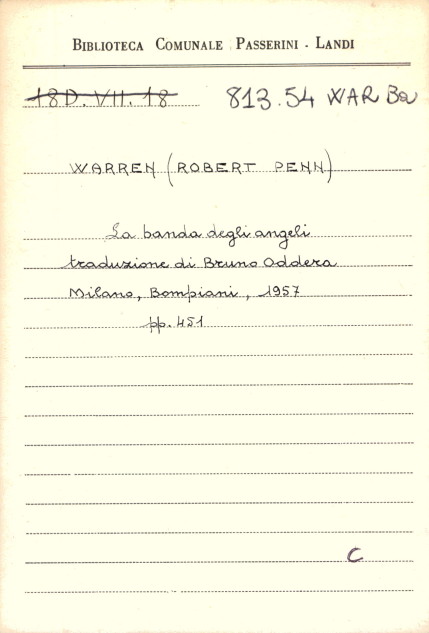 BIBLIOTECA COMUNALE PASSERINI - LANDI
18D. VII. 18 813.54 WAR Ba
WARREN (ROBERT PENN)
La banda degli angeli
traduzione di Bruno Oddera
Milano, Bompiani, 1957
pp. 451
C